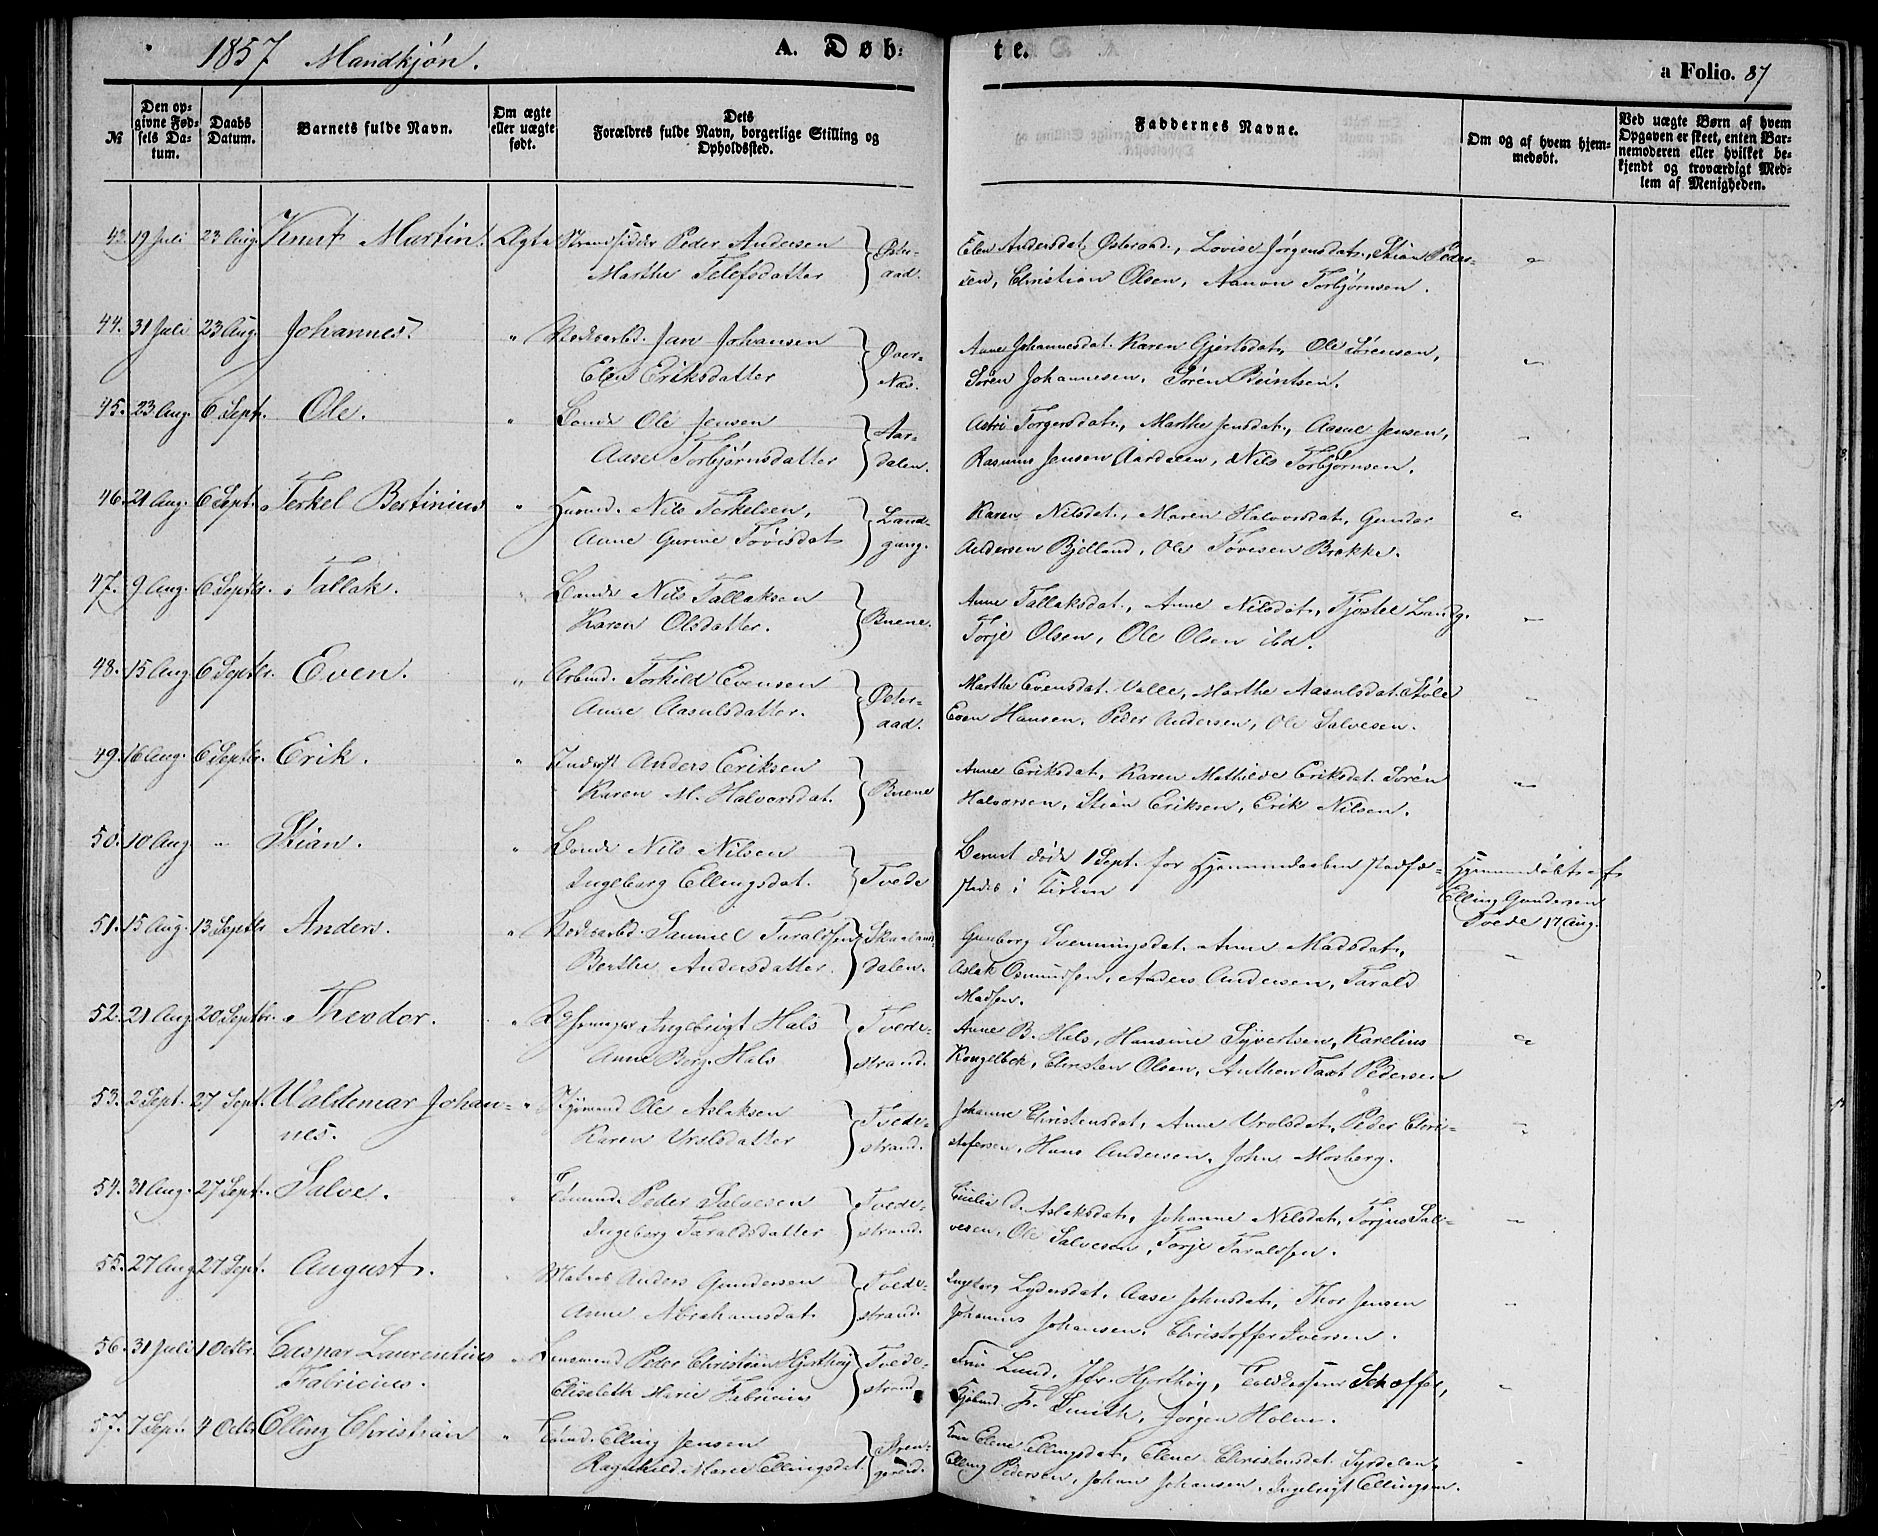 1857 Mandkjøn. A. Døb-te. a Folio. 87
№ Den opgivne Fødsels Datum. Daabs Datum. Barnets fulde Navn. Om ægte eller uægte født. Dets Forældres fulde Navn, borgerlige Stilling og Opholdssted. Faddernes Navne. Om og af hvem hjemmedøbt. Ved uægte Børn af hvem Opgaven er skeet, enten Barnemoderen eller hvilket bekjendt og troværdigt Medlem af Menigheden.
43. 19 Juli 23 Aug. Knut Martin. Ægte Strandsidder Peder Andersen Øster- Elen Andersdat. Østeraad., Lovise Jørgensdat., Stian Peder-
Marthe Telefsdatter aad. sen, Christian Olsen, Aanon Torbjørnsen.
44. 31 Juli 23 Aug. Johannes. " Jan Johansen Over- Anne Johannesdat. Karen Gjertsdat., Ole Sørensen,
Elen Eriksdatter Næs. Søren Johannesen, Søren Beintsen.
45. 23 Aug. 6 Sept. Ole. " Bonde Ole Jensen Aar- Astri Torgersdat., Marthe Jensdat., Aasne Jensen,
Aase Torbjørnsdatter dalen. Rasmus Jensen Aardalen, Nils Torbjørnsen.
46. 21 Aug. 6 Sept. Terkel Bertinius " Husmd. Nils Terkelsen, Land- Karen Nilsdat., Maren Halvorsdat., Gunder
Anne Gurine Tovisdat. gang. Andersen Bjelland, Ole Tovesen Brekke.
47. 9 Aug. 6 Septbr. Tallak. " Bonde Nils Tallaksen Buene. Anne Tallaksdat., Anne Nilsdat., Fjostel Landg.
Karen Olsdatter. Torje Olsen, Ole Olsen ibd.
48. 15 Aug. 6 Septbr. Even. " Arbmd. Torkild Evensen Øster- Marthe Evensdat. Valle, Marthe Aasulsdat. Støle
Anne Aasulsdatter. aad. Even Hansen, Peder Andersen, Ole Salvesen.
49. 16 Aug. 6 Septbr. Erik. " Inderst Anders Eriksen Buene Anne Eriksdat., Karen Mathilde Eriksdat. Søren
Karen M. Halvorsdat. Halvorsen, Stian Eriksen, Erik Nilsen.
50. 10 Aug. " Stian. " Bonde Nils Nilsen Tvede Barnet døde 1 Sept. før Hjemmedaaben stadfæ- Hjemmedøbt af
Ingeborg Ellingsdat. stedes i Kirken Elling Gundersen
Tvede 17 Aug.
51. 15 Aug. 13 Septbr. Anders. " Samuel Taraldsen Skarlands- Gunborg Svenningsdat. Anne Madsdat.,
Berthe Andersdatter. dalen. Aslak Osmundsen, Anders Andersen, Tarald
Madsen.
52. 21 Aug. 20 Septbr. Theodor. " Ingebrigt Hals Tvede- Anne B. Hals, Hansine Syvertsen, Karelius
Anne Berg. Hals strand. Kongelbek, Christen Olsen, Anthon Taxt Pedersen
53. 2 Sept. 27 Sept. Waldemar Johan- " Ole Aslaksen Tvede- Johanne Christensdat., Anne Urolsdat., Peder Chri-
nes. Karen Urolsdatter strand. stofersen, Hans Andersen, John Mosberg.
54. 31 Aug. 27 Sept. Salve. " Peder Salvesen Tvede- Cecilie Aslaksdat., Johanne Nilsdat., Torjus Sal-
Ingeborg Taraldsdatter strand. vesen, Ole Salvesen, Torje Taraldsen.
55. 27 Aug 27 Sept. August. " Matros Anders Gundersen Tvede- Ingeborg Lydersdat., Aase Johnsdat., Thor Jensen
Anne Abrahamsdat. strand. Johannes Johansen, Christoffer Iversen.
56. 31 Juli 1 Octbr. Caspar Laurentius " Lensmand Peder Christian Hjorthøy Tvede- Fru Lund, Jfr. Hjorthøy, Schøffer,
Fabricius. Elisabeth Marie Fabricius strand. F. Smith, Jørgen Holm.
57. 7 Sept. 4 Octbr Elling Christian " Elling Jensen Elene Ellingsdat., Elene Christensdat. Syrdalen,
Ragnhild Marie Ellingsdat. Elling Pedersen, Johan Johansen, Ingebrigt Ellingsen.